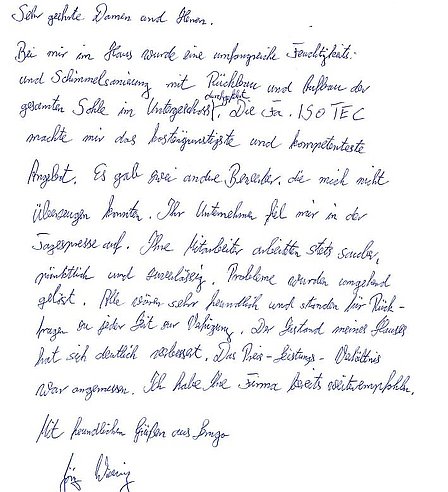 Sehr geehrte Damen und Herren.
Bei mir im Haus wurde eine umfangreiche Feuchtigkeits-
und Schimmelsanierung mit Rückbau und Aufbau der
gesamten Sohle im Untergeschoss durchgeführt. Die Fa. ISOTEC
machte mir das kostengünstigste und kompetenteste
Angebot. Es gab zwei andre Bewerber, die mich nicht
überzeugen konnten. Ihr Unternehmen fiel mir in der
Tagespresse auf. Ihre Mitarbeiter arbeiteten stets sauber,
pünktlich und zuverlässig. Probleme wurden umgehend
gelöst. Alle waren sehr freundlich und standen für Rück-
fragen zu jeder Zeit zur Verfügung. Der Zustand meines Hauses
hat sich deutlich verbessert. Das Preis-Leistungs-Verhältnis
war angemessen. Ich habe Ihre Firma bereits weiterempfohlen.
Mit freundlichen Grüßen aus
Jörg